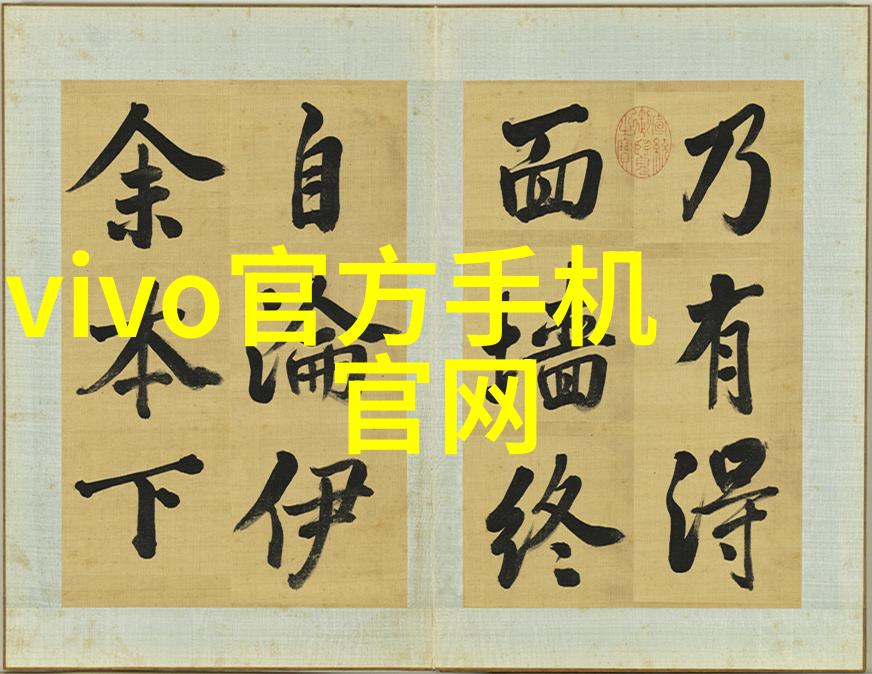 vivo官方手机
官网
乃有得
面墻终
自淪伊
余本下